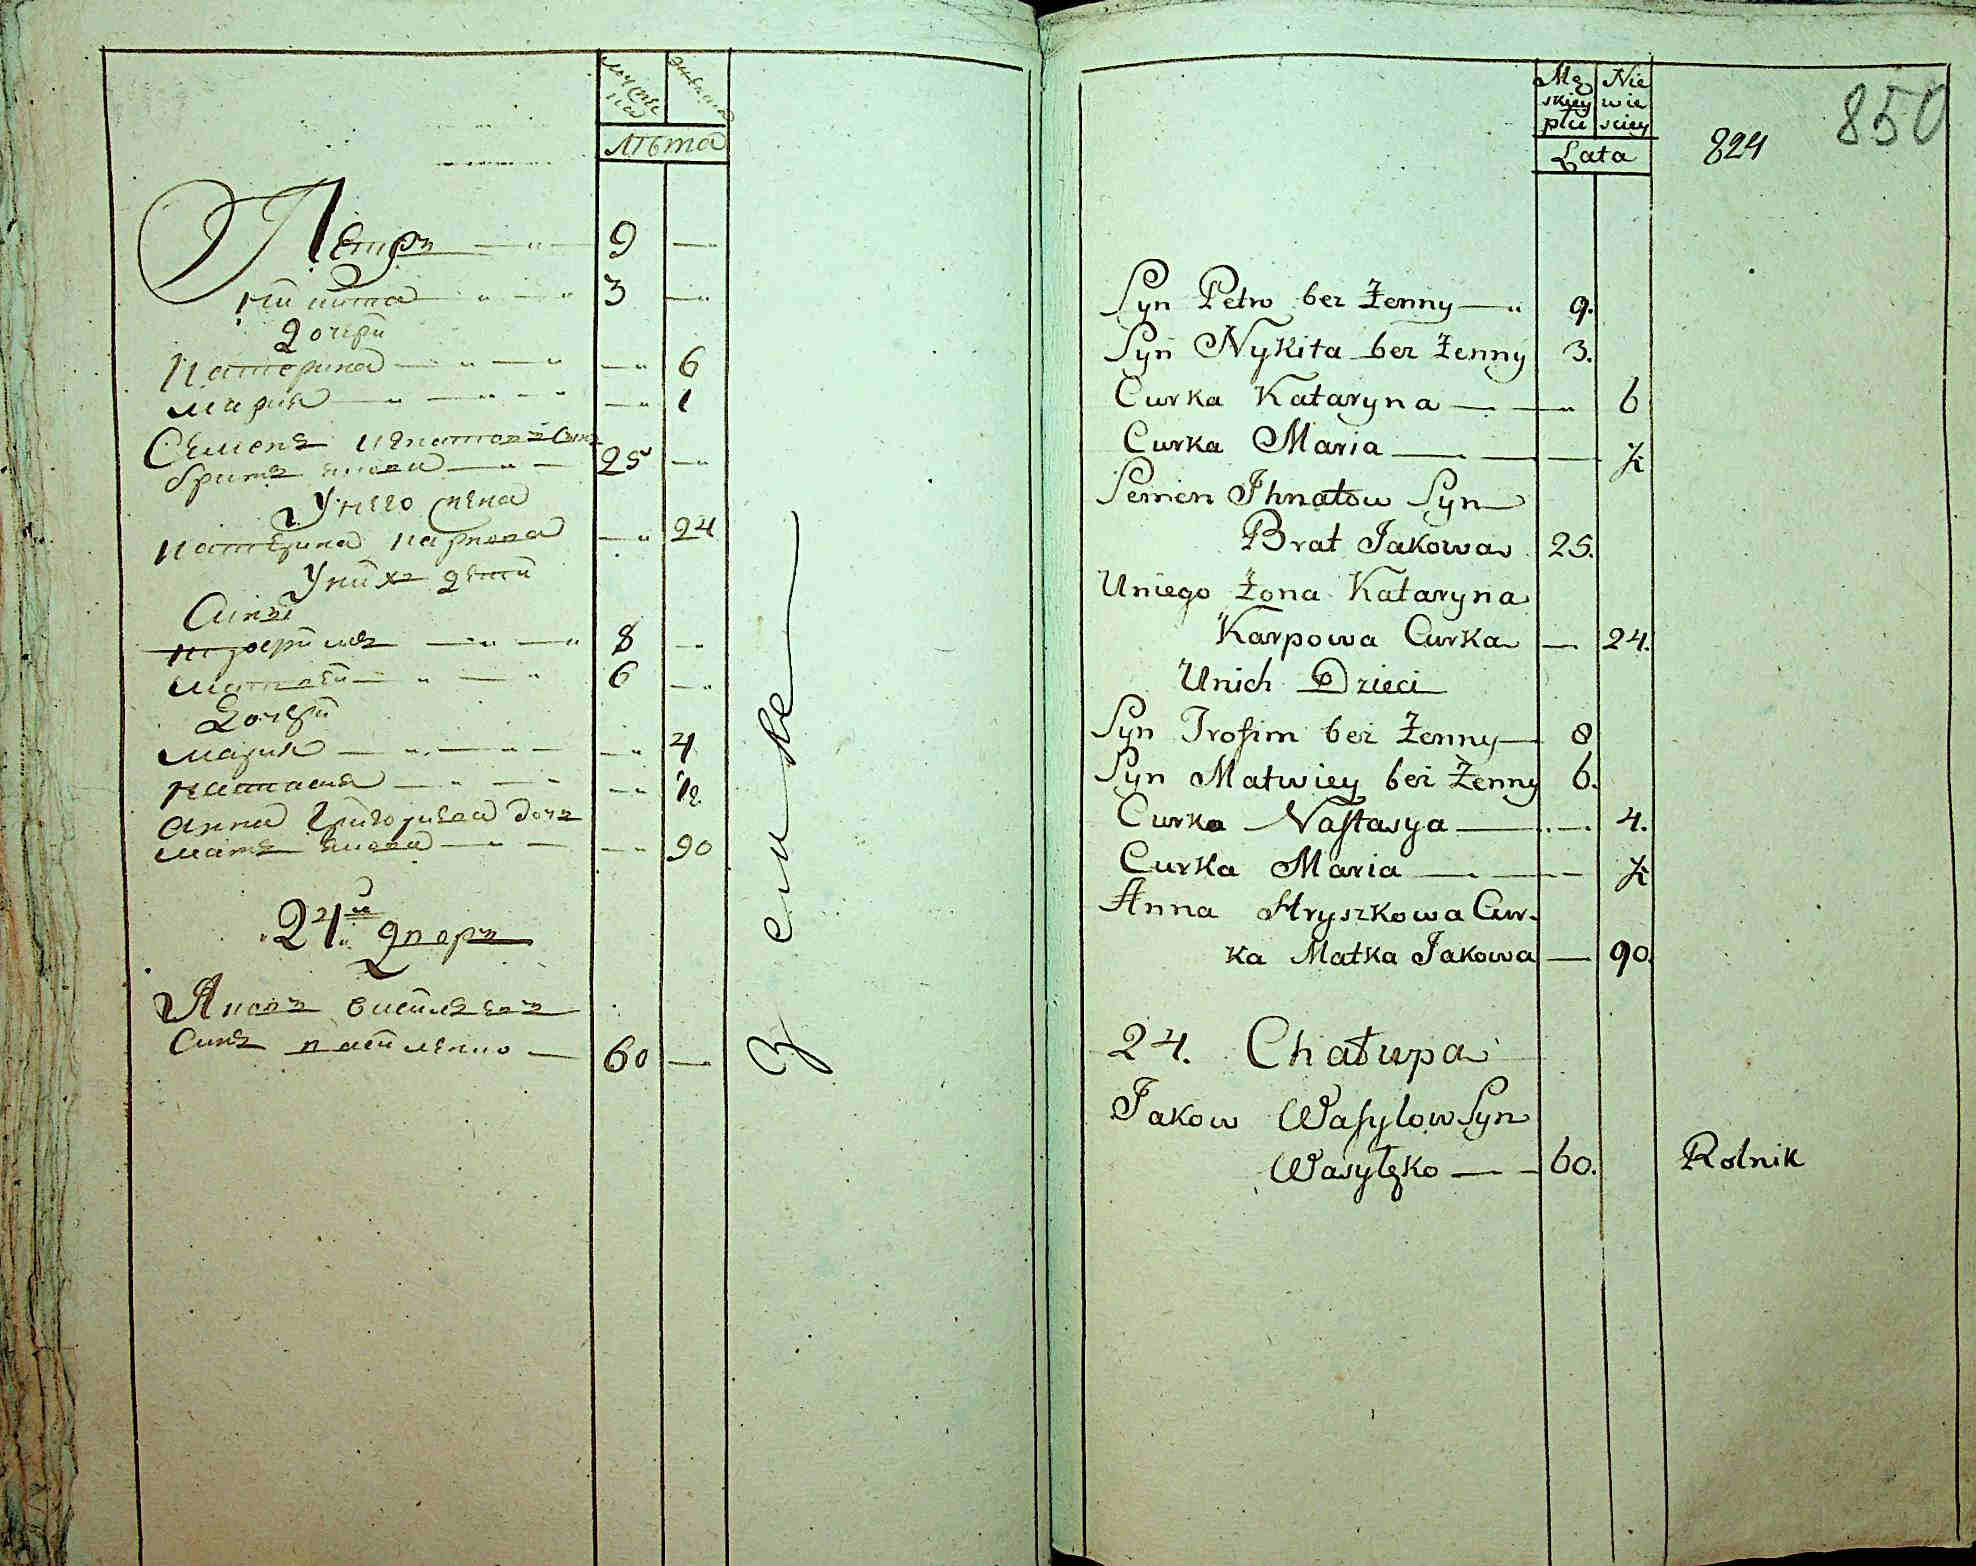 мужеска
женска
лѣта
Петръ 9
Никита 3
дочери
Катерина 6
Мария 1
Семенъ Игнатовъ Синъ
братъ Якова 25
У него жена
Катерина Карпова 24
У них дети
Сины
Трофимъ 8
Матвей 6
Дочери
Мария 4
Настасия 1/2
Анна Григорьева дочь
мать Якова 90
24й дворъ
Яковъ Василевъ
Синъ Василенко 60
Męskiey płci
Niewieściey
Lata
824
850
Syn Petro bez Żenny 9.
Syn Nykita bez Żenny 3.
Curka Kataryna 6
Curka Maria ½
Semen Ihnatow Syn
Brat Jakowa 25.
Uniego Żona Kataryna
Karpowa Curka 24.
Unich Dzieci
Syn Trofim bez Żenny 8
Syn Matwiey bez Żenny 6.
Curka Nastasya 4.
Curka Maria ½
Anna Hryszkowa Cur-
ka Matka Jakowa 90.
24. Chałupa
Jakow Wasylow Syn
Wasylęko 60. Rolnik